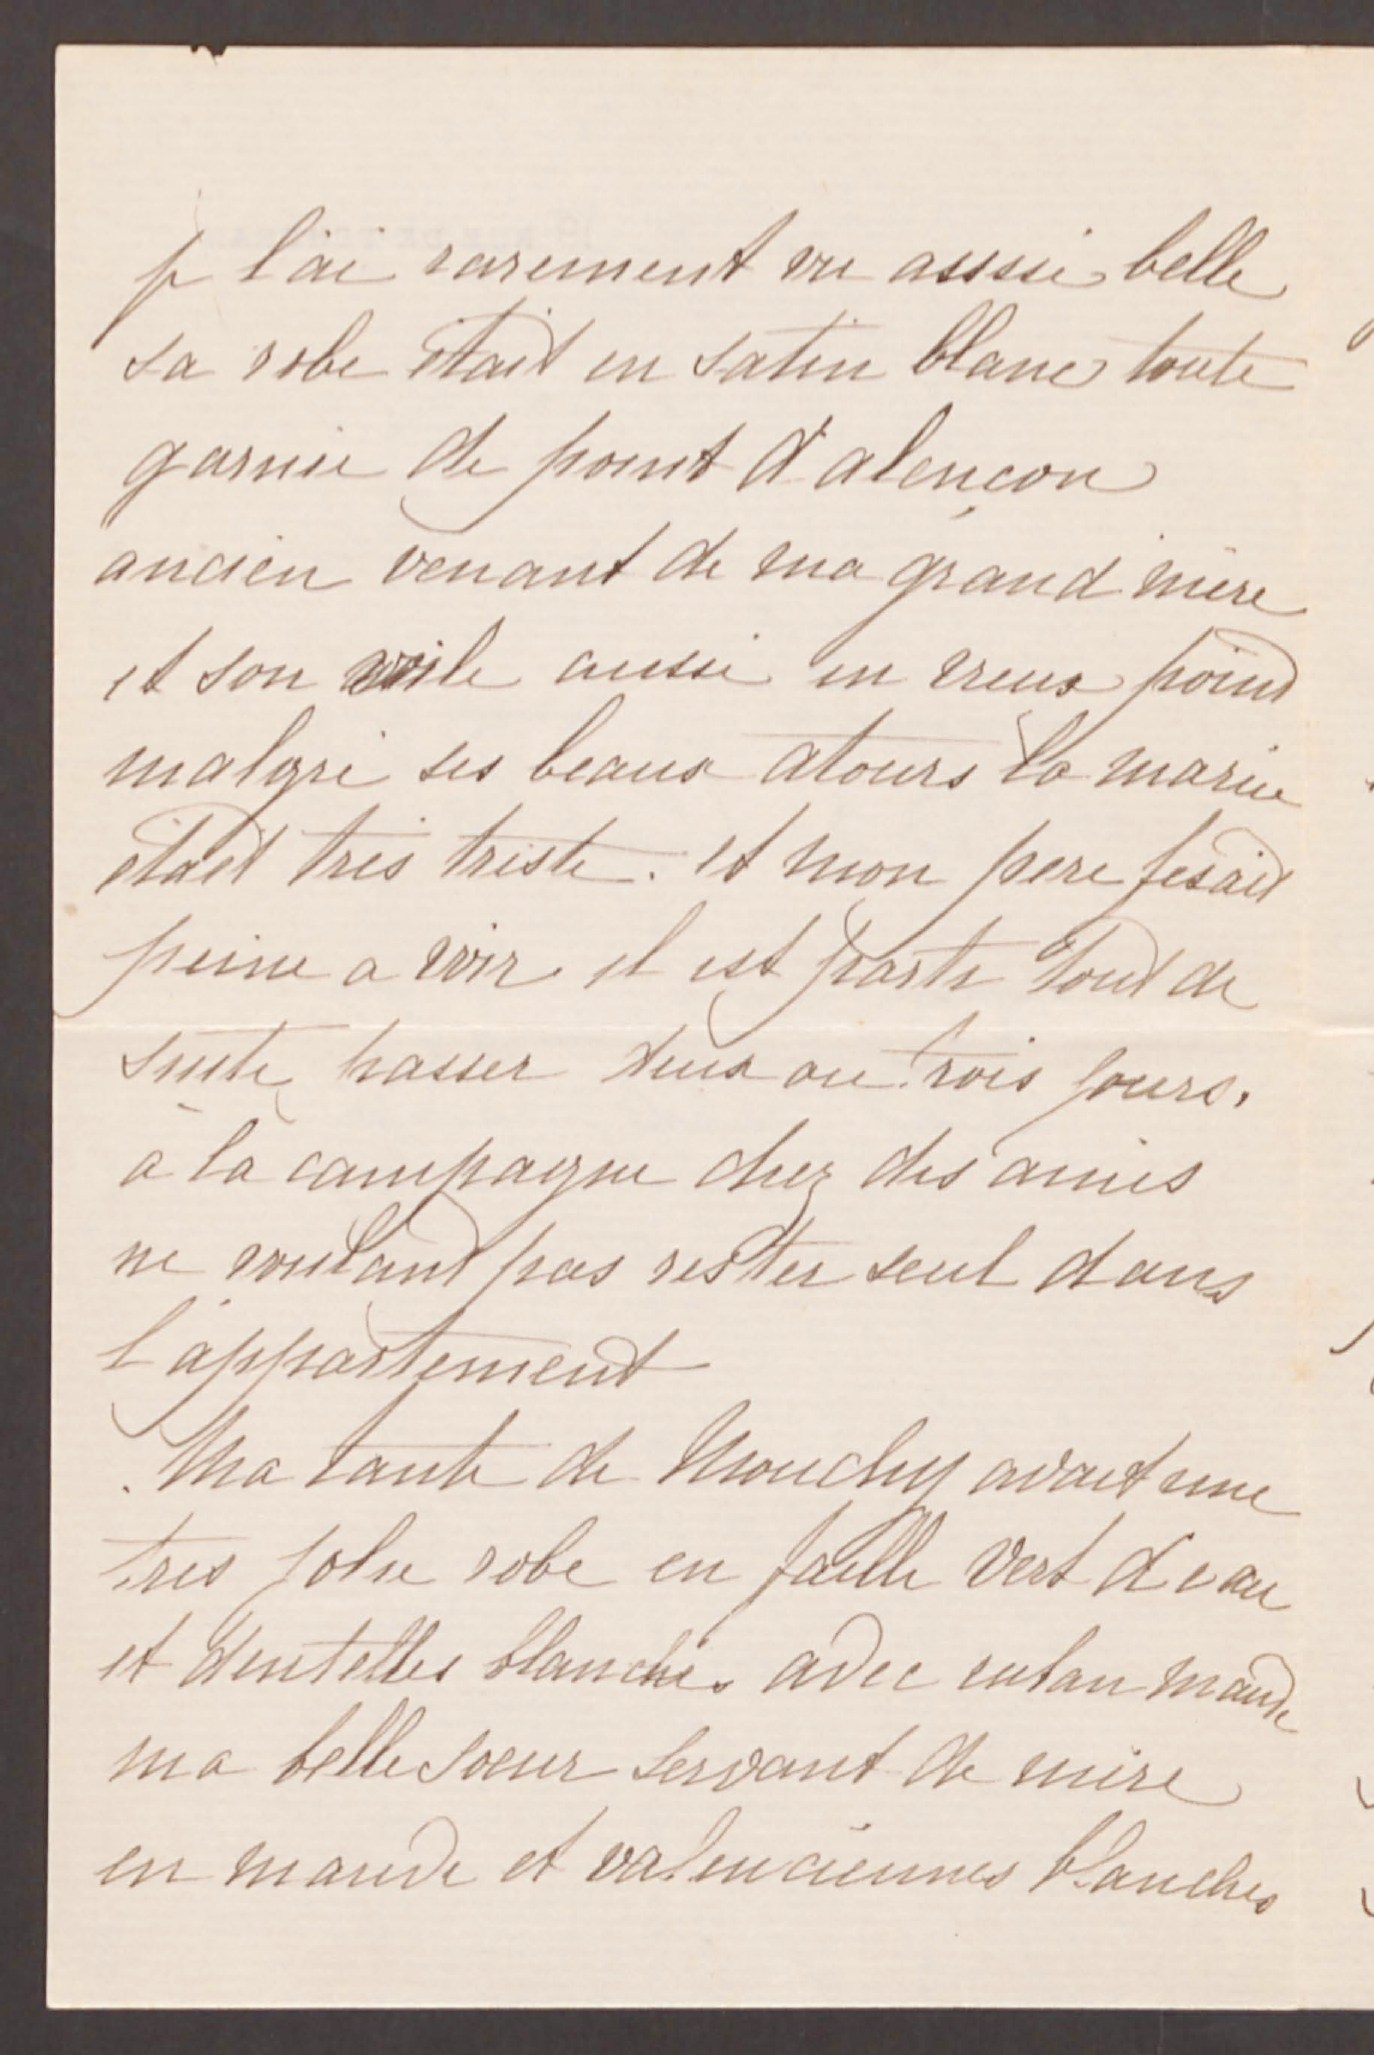 je l'ai rarement vu aussi belle
sa robe était en satin blanc toute
garnie de point d'alençon
ancien venant de ma grand mère
et son voile aussi en vieux point
malgré ses beaux atours la mariée
était très triste. et mon pere fesait
peine a voir. il est parti tout de
suite, passer deux ou trois jours.
à la campagne chez des amies
ne voulant pas rester seul dans
l'appartement
Ma tante de Mouchy avait une
tres jolie robe en faille vert d'eau
et dentelles blanches. avec ruban mauve
ma belle soeur servant de mère
en mauve et valenciennes blanches